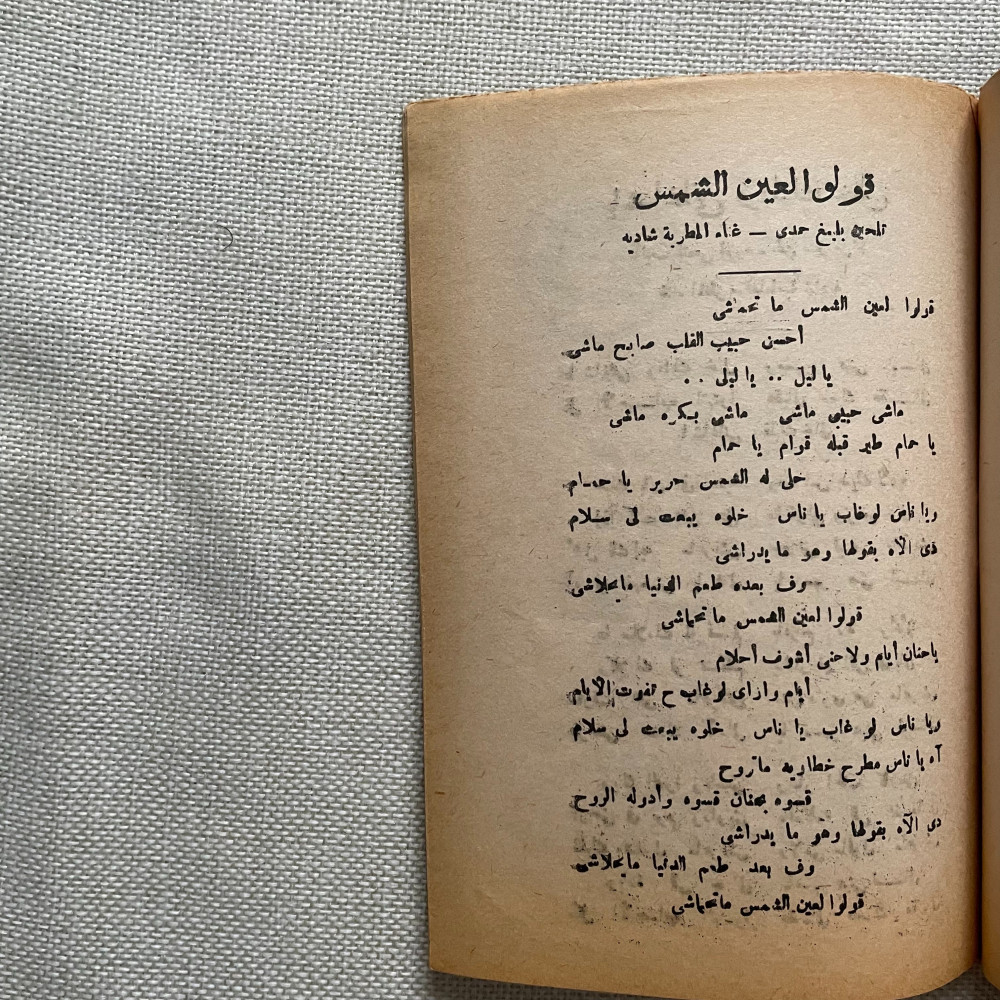 قولوا لعين الشمس
تلحين بليغ حمدى — غناء المطربة شاديه
قولوا لعين الشمس ما تحماشى
أحسن حبيب القلب صابح ماشى
يا ليل .. يا ليلى ..
ماشى حبيبى ماشى ماشى بكره ماشى
يا حمام طير قبله قوام يا حمام
خلى له الشمس حرير يا حمام
ويا ناس لو غاب يا ناس خلوه يبعت لى سلام
دى الآه بقولها وهو ما يدراشى
وف بعده طعم الدنيا مايحلاشى
قولوا لعين الشمس ماتحماشى
ياحنان أيام ولاحتى أشوف أحلام
أيام وازاى لو غاب ح تفوت الأيام
ويا ناس لو غاب يا ناس خلوه يبعت لى سلام
آه يا ناس مطرح خطاويه ماتروح
قسوه بحنان قسوه وأدوله الروح
دى الآه بقولها وهو ما يدراشى
وف بعد طعم الدنيا مايحلاشى
قولوا لعين الشمس ماتحماشى